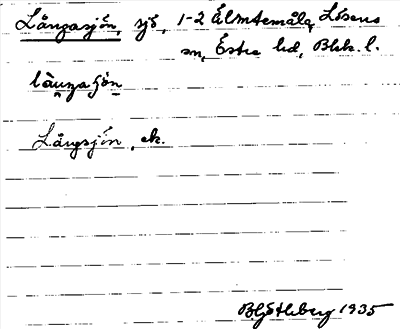 Långasjön, sjö, 1-2 Älmtemåla, Lösens
sn, Östra hd, Blek. l.
långasjön
Långsjön, ek.
1935